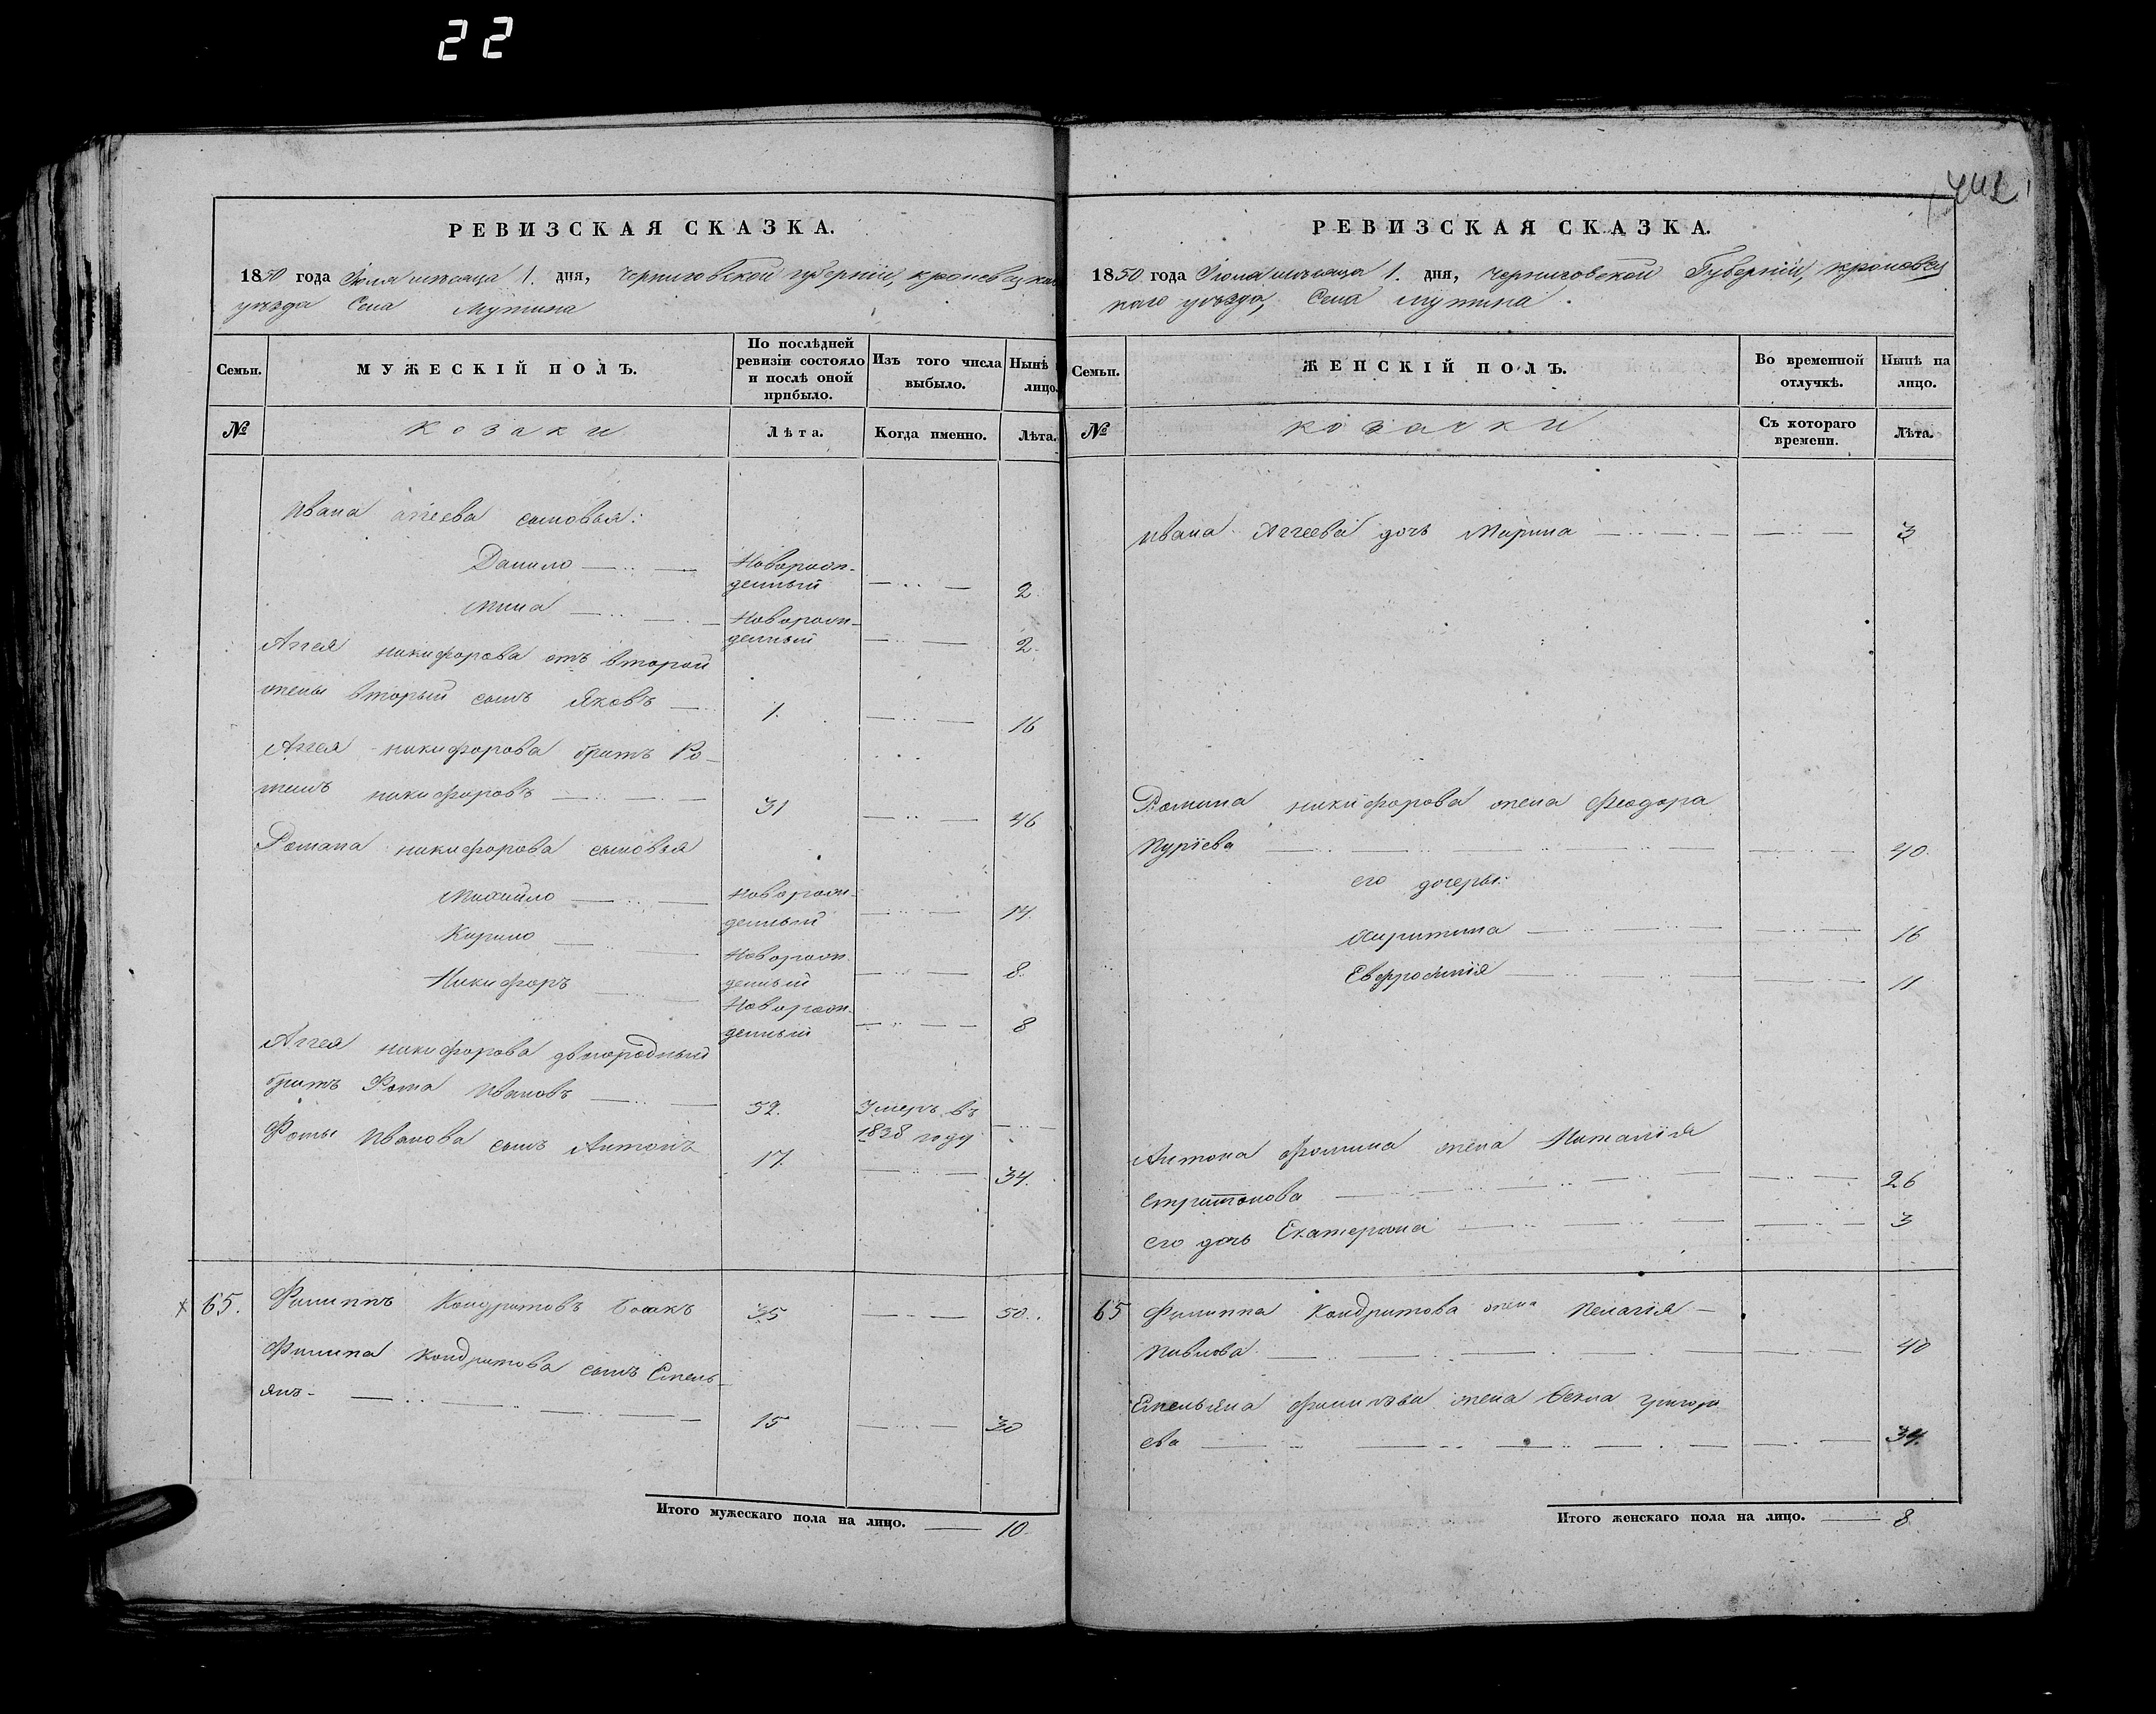 22
442
РЕВИЗСКАЯ СКАЗКА.
1850 года Июля мѣсяца 1. дня, Черниговской губерніи, кролевецкаго
уѣзда Села Мутина
Семьи. МУЖЕСКІЙ ПОЛЪ. По послѣдней ревизіи состояло и послѣ оной прибыло. Изъ того числа выбыло. Нынѣ лицо.
№ козаки Лѣта. Когда именно. Лѣта.
Ивана Аггеева сыновья:
Данило Новорожденный 2.
Мина Новорожденный 2.
Аггея никифорова отъ второй
жены вторый сынъ Яковъ 1. 16
Аггея никифорова братъ Ро-
манъ никифоровъ 31 46
Романа никифорова сыновья
Михайло Новорожденный 14.
Кирило Новорожденный 8.
Никифоръ Новорожденный 8
Аггея никифорова двюродный
братъ Фома Ивановъ 52. Умеръ въ 1838 году
Фомы Иванова сынъ Антонъ 17. 34.
65. Филиппъ Кондратовъ 35 50.
Филипа Кондратова сынъ Емель-
янъ 15 30
Итого мужескаго пола на лицо. 10
РЕВИЗСКАЯ СКАЗКА.
1850 года Июля мѣсяца 1. дня, Черниговской Губерніи, кролевец
каго уѣзда, Села Мутина.
Семьи. ЖЕНСКІЙ ПОЛЪ. Во временной отлучкѣ. Нынѣ на лицо.
№ козачки Съ котораго времени. Лѣта.
Ивана Аггеева дочь Марина 3
Романа никифорова жена Феодора
40.
его дочеры:
16
Евфросинія 11
Антона Фомина жена Наталія
26
его дочь Екатерина 3
65 Филиппа Кондратова жена Пелагія
Павлова 40
Емельяна Филипова жена Ѳекла Григорь
ева 34.
Итого женскаго пола на лицо. 8